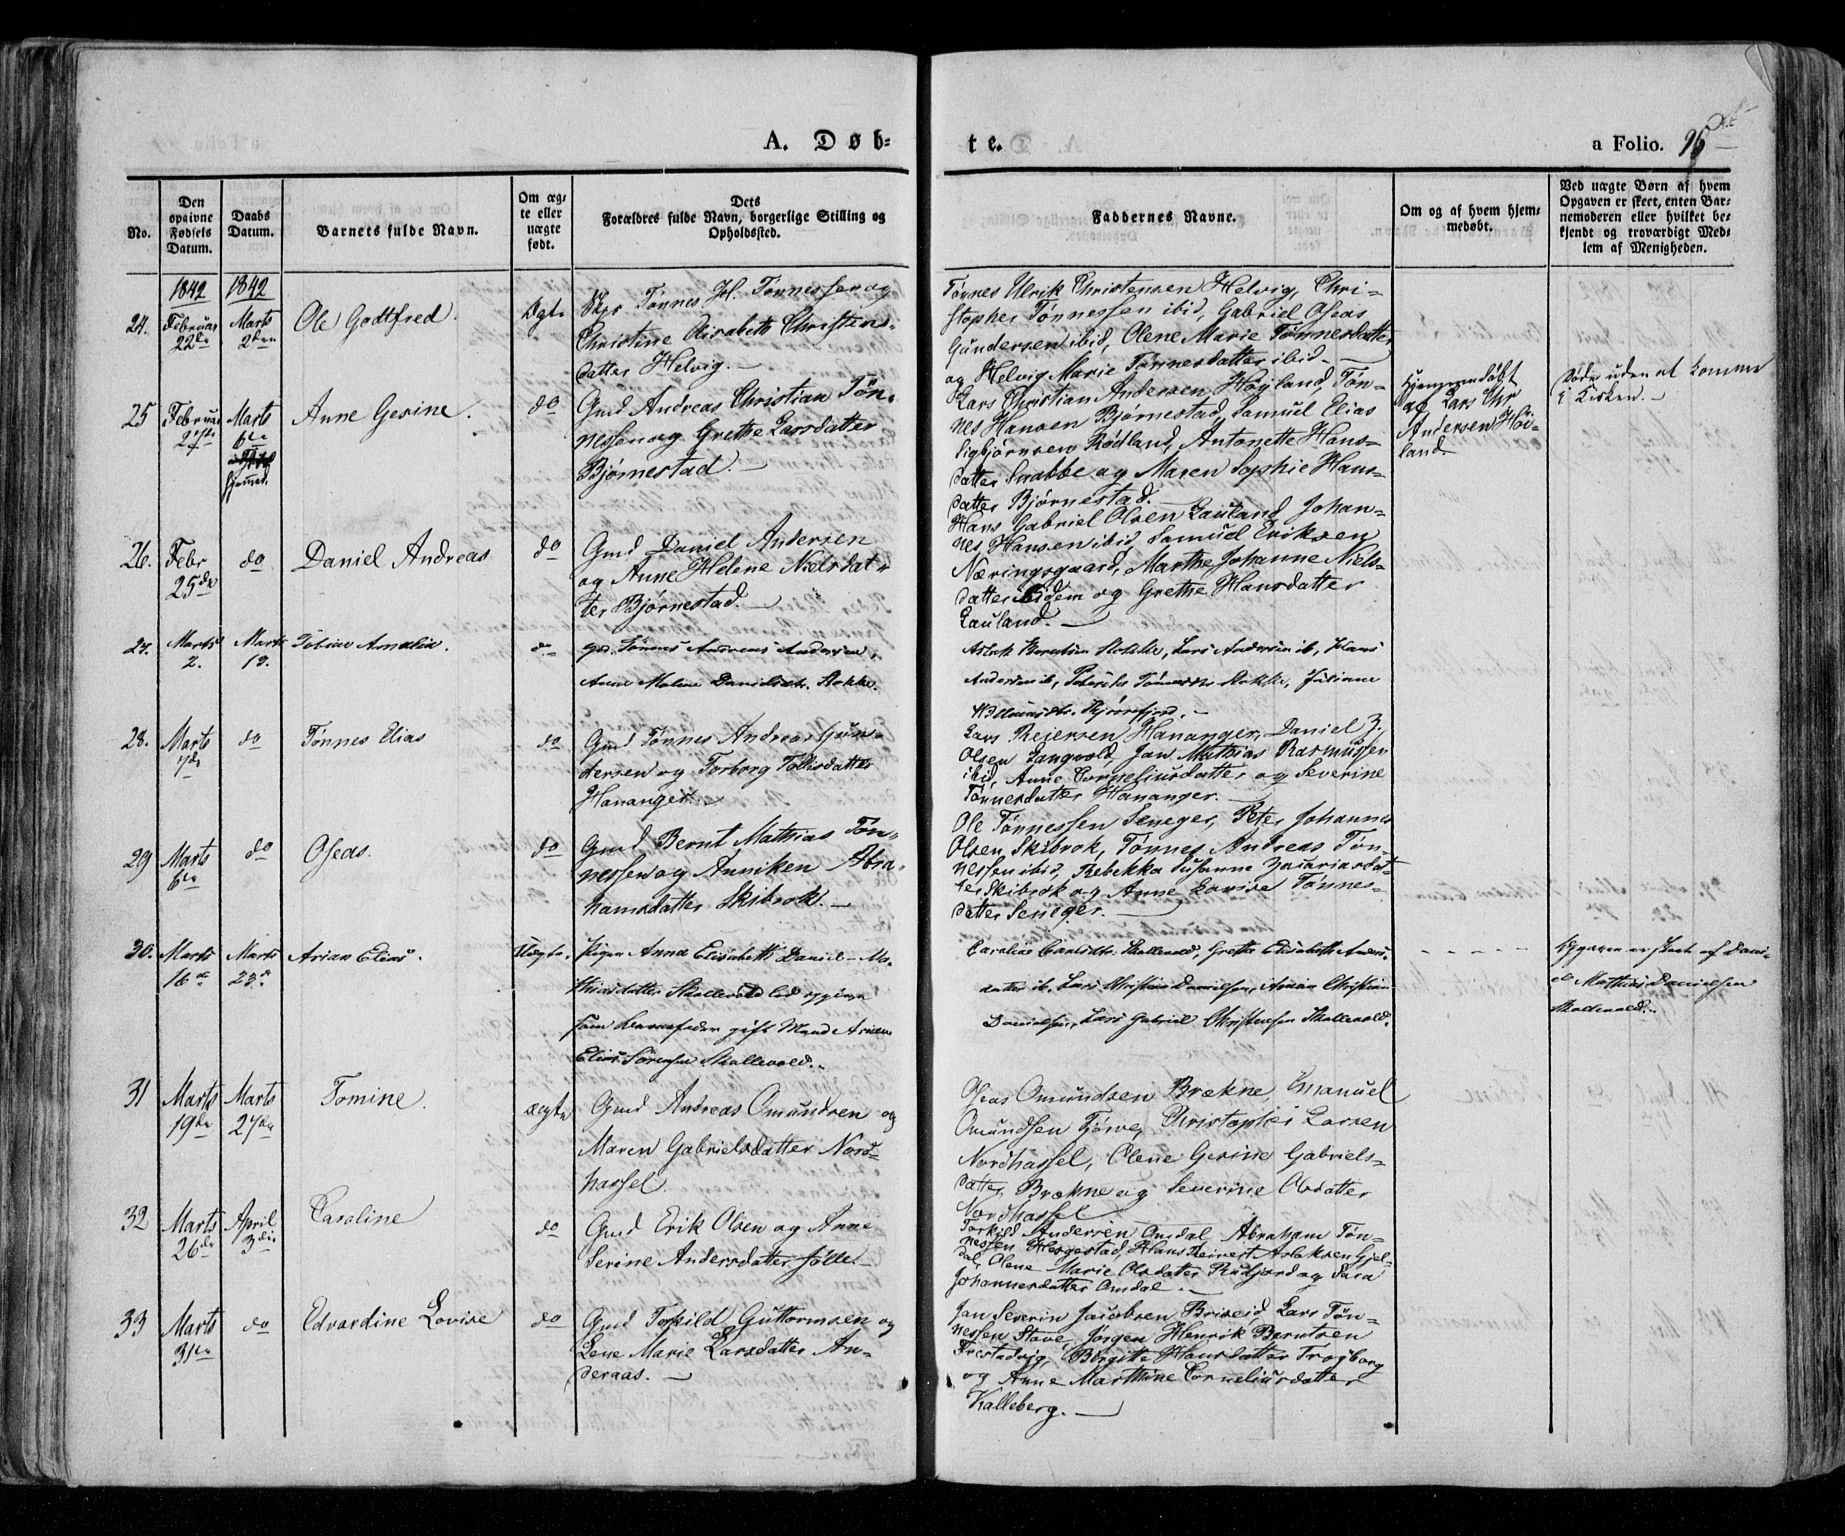 A. Døb-
te.
a Folio. 96
No.
Den
opgivne
Fødsels
Datum.
Daabs
Datum.
Barnets fulde Navn.
Om æg-
te eller
uægte
født.
Dets
Forældres fulde Navn, borgerlige Stilling og
Opholdssted.
Faddernes Navne.
Om og af hvem hjem-
medøbt.
Ved uægte Børn af hvem
Opgaven er skeet, enten Bar-
nemoderen eller hvilket be-
kjendt og troværdigt Med-
lem af Menigheden.
1842
1842
24.
Februar
22de
Marts
2den
Ole Godtfred.
Ægte
Tønnes Joh. Tønnessen og
Christine Elisabeth Christens-
datter Helvig.
Tønnes Ulrik Christensen Helvig, Chri-
stopher Tønnessen ibid, Gabriel Oseas
Gundersen ibid, Olene Marie Tønnesdatter
og Helvig Marie Tønnesdatter ibid.
25
Februar
Marts
6te
hjemmed.
Anne Gesine.
do
Gmd Andreas Christian Tøn-
nessen og Grethe Larsdatter
Bjørnestad.
Lars Christian Andersen Høyland, Tøn-
nes Hansen Bjørnestad, Samuel Elias
Sigbjørnsen Rødland, Antonette Hans-
datter Snabbe og Maren Sophie Hans-
datter Bjørnestad.
Hjemmedøbt
af Lars Chr
Andersen Høi-
land.
Døde uden at komme
i Kirken.
26.
Febr
25de
do
Daniel Andreas
do
Gmd Daniel Andersen
og Anne Helene Nielsdat-
ter Bjørnestad.
Hans Gabriel Olsen Lauland, Johan-
nes Hansen ibid, Samuel Eriksen
Næringsgaard, Marthe Johanne Niels-
datter ibidem og Grethe Hansdatter
Lauland.
27.
Marts
2.
Marts
13.
Tobine Amalia.
do
Gd. Tønnes Andreas Andersen,
Anne Malene Danielsdtr. Stokke.
Aslak Berntsen Stokke, Lars Andersen ib, Hans
Andersen ib, Tønnesdtr Stokke, Juliane
28.
Marts
7de
do
Tønnes Elias
do
Gmd Tønnes Andreas Gun-
dersen og Torborg Tollisdatter
Hananger.
Lars Reiersen Hananger, Daniel Z.
Olsen Langvold, Jan Mathias Rasmussen
ibid, Anne Corneliusdatter og Severine
Tønnesdatter Hananger.
29
Marts
6te
do
Oseas.
do
Gmd Bernt Mathias Tøn-
nessen og Anniken Abra-
hamsdatter Skibrok.
Ole Tønnessen Seneger, Peter Johannes
Olsen Skibrok, Tønnes Andreas Tøn-
nessen ibid, Rebekka Susanne Zacariasdat-
ter Skibrok og Anne Lovise Tønnes-
datter Seneger.
30.
Marts
16de
Marts
23de
Arian Elias.
Uægte.
Pigen Anna Elisabeth Daniel-Ma-
thiasdatter Skollevold lod opgive
som Barnefader gift Mand Arian
Elias Sørensen Skollevold.
Caroline Carlsdtr. Skollevold, Grethe Elisabeth Anders-
datter ib. Lars Christian Danielsen, Arian Christian
Danielsen, Lars Gabriel Christensen Skollevold.
- - - -
Opgaven er skeet af Dani-
el Mathias Danielsen
Skollevold.
31
Marts
19de
Marts
27de
Tomine.
ægte
Gmd Andreas Omundsen og
Maren Gabrielsdatter Nord-
hassel.
Oseas Omundsen Brækne, Emanuel
Omundsen Tjørve, Christopher Larsen
Nordhassel, Olene Gesine Gabriels-
datter Brækne og Severine Olsdatter
Nordhassel
32
Marts
26de
April
3die
Caroline
do
Gmd Erik Olsen og Anne
Serine Andersdatter Jølle
Torkild Andersen Omdal, Abraham Tøn-
nessen Heskestad, Hans Reinert Aslaksen Gjel-
dal, Olene Marie Olsdatter Rudjord og Sara
Johannesdatter Omdal.
33
Marts
31te
do
Edvardine Lovise
do
Gmd Torkild Guttormsen og
Lene Marie Larsdatter An-
deraas.
Jan Severin Jacobsen Briseid, Lars Tøn-
nessen Stave, Jørgen Henrik Berntsen
Frestadvig, Birgitte Hansdatter Trogborg
og Anne Marthine Corneliusdatter
Kalleberg.